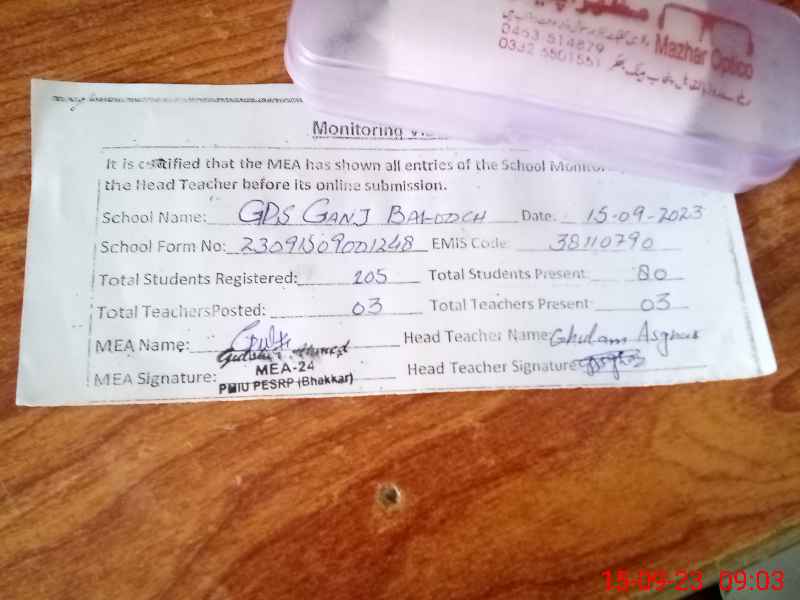 0453 514879
0332 5501551
Mazhar Optico
Monitoring
It is certified that the MEA has shown all entries of the School Monitor
the Head Teacher before its online submission.
School Name: GPS GANJ BALOOCH Date: 15-09-2023
School Form No: 23091509001248 EMIS Code: 38110790
Total Students Registered: 105 Total Students Present: 80
Total TeachersPosted: 03 Total Teachers Present: 03
MEA Name: Head Teacher Name: Ghulam Asghar
MEA-24
MEA Signature: Head Teacher Signature
PMIU PESRP (Bhakkar)
15-09-23 09:03